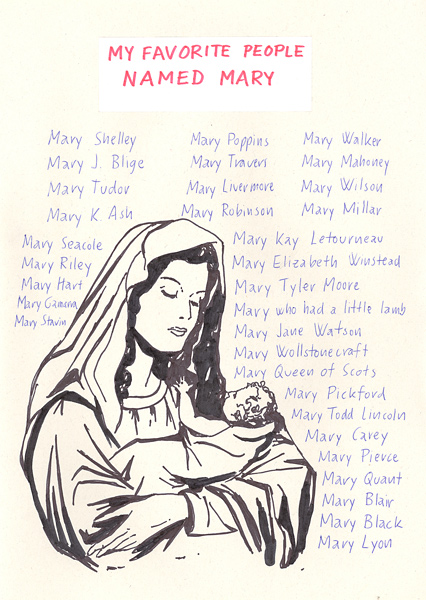 MY FAVORITE PEOPLE
NAMED MARY
Mary Shelley
Mary J. Blige
Mary Tudor
Mary K. Ash
Mary Seacole
Mary Riley
Mary Hart
Mary Camera
Mary Stavin
Mary Poppins
Mary Travers
Mary Livermore
Mary Robinson
Mary Walker
Mary Mahoney
Mary Wilson
Mary Millar
Mary Kay Letourneau
Mary Elizabeth Winstead
Mary Tyler Moore
Mary who had a little lamb
Mary Jane Watson
Mary Wollstonecraft
Mary Queen of Scots
Mary Pickford
Mary Todd Lincoln
Mary Carey
Mary Pierce
Mary Quant
Mary Blair
Mary Black
Mary Lyon